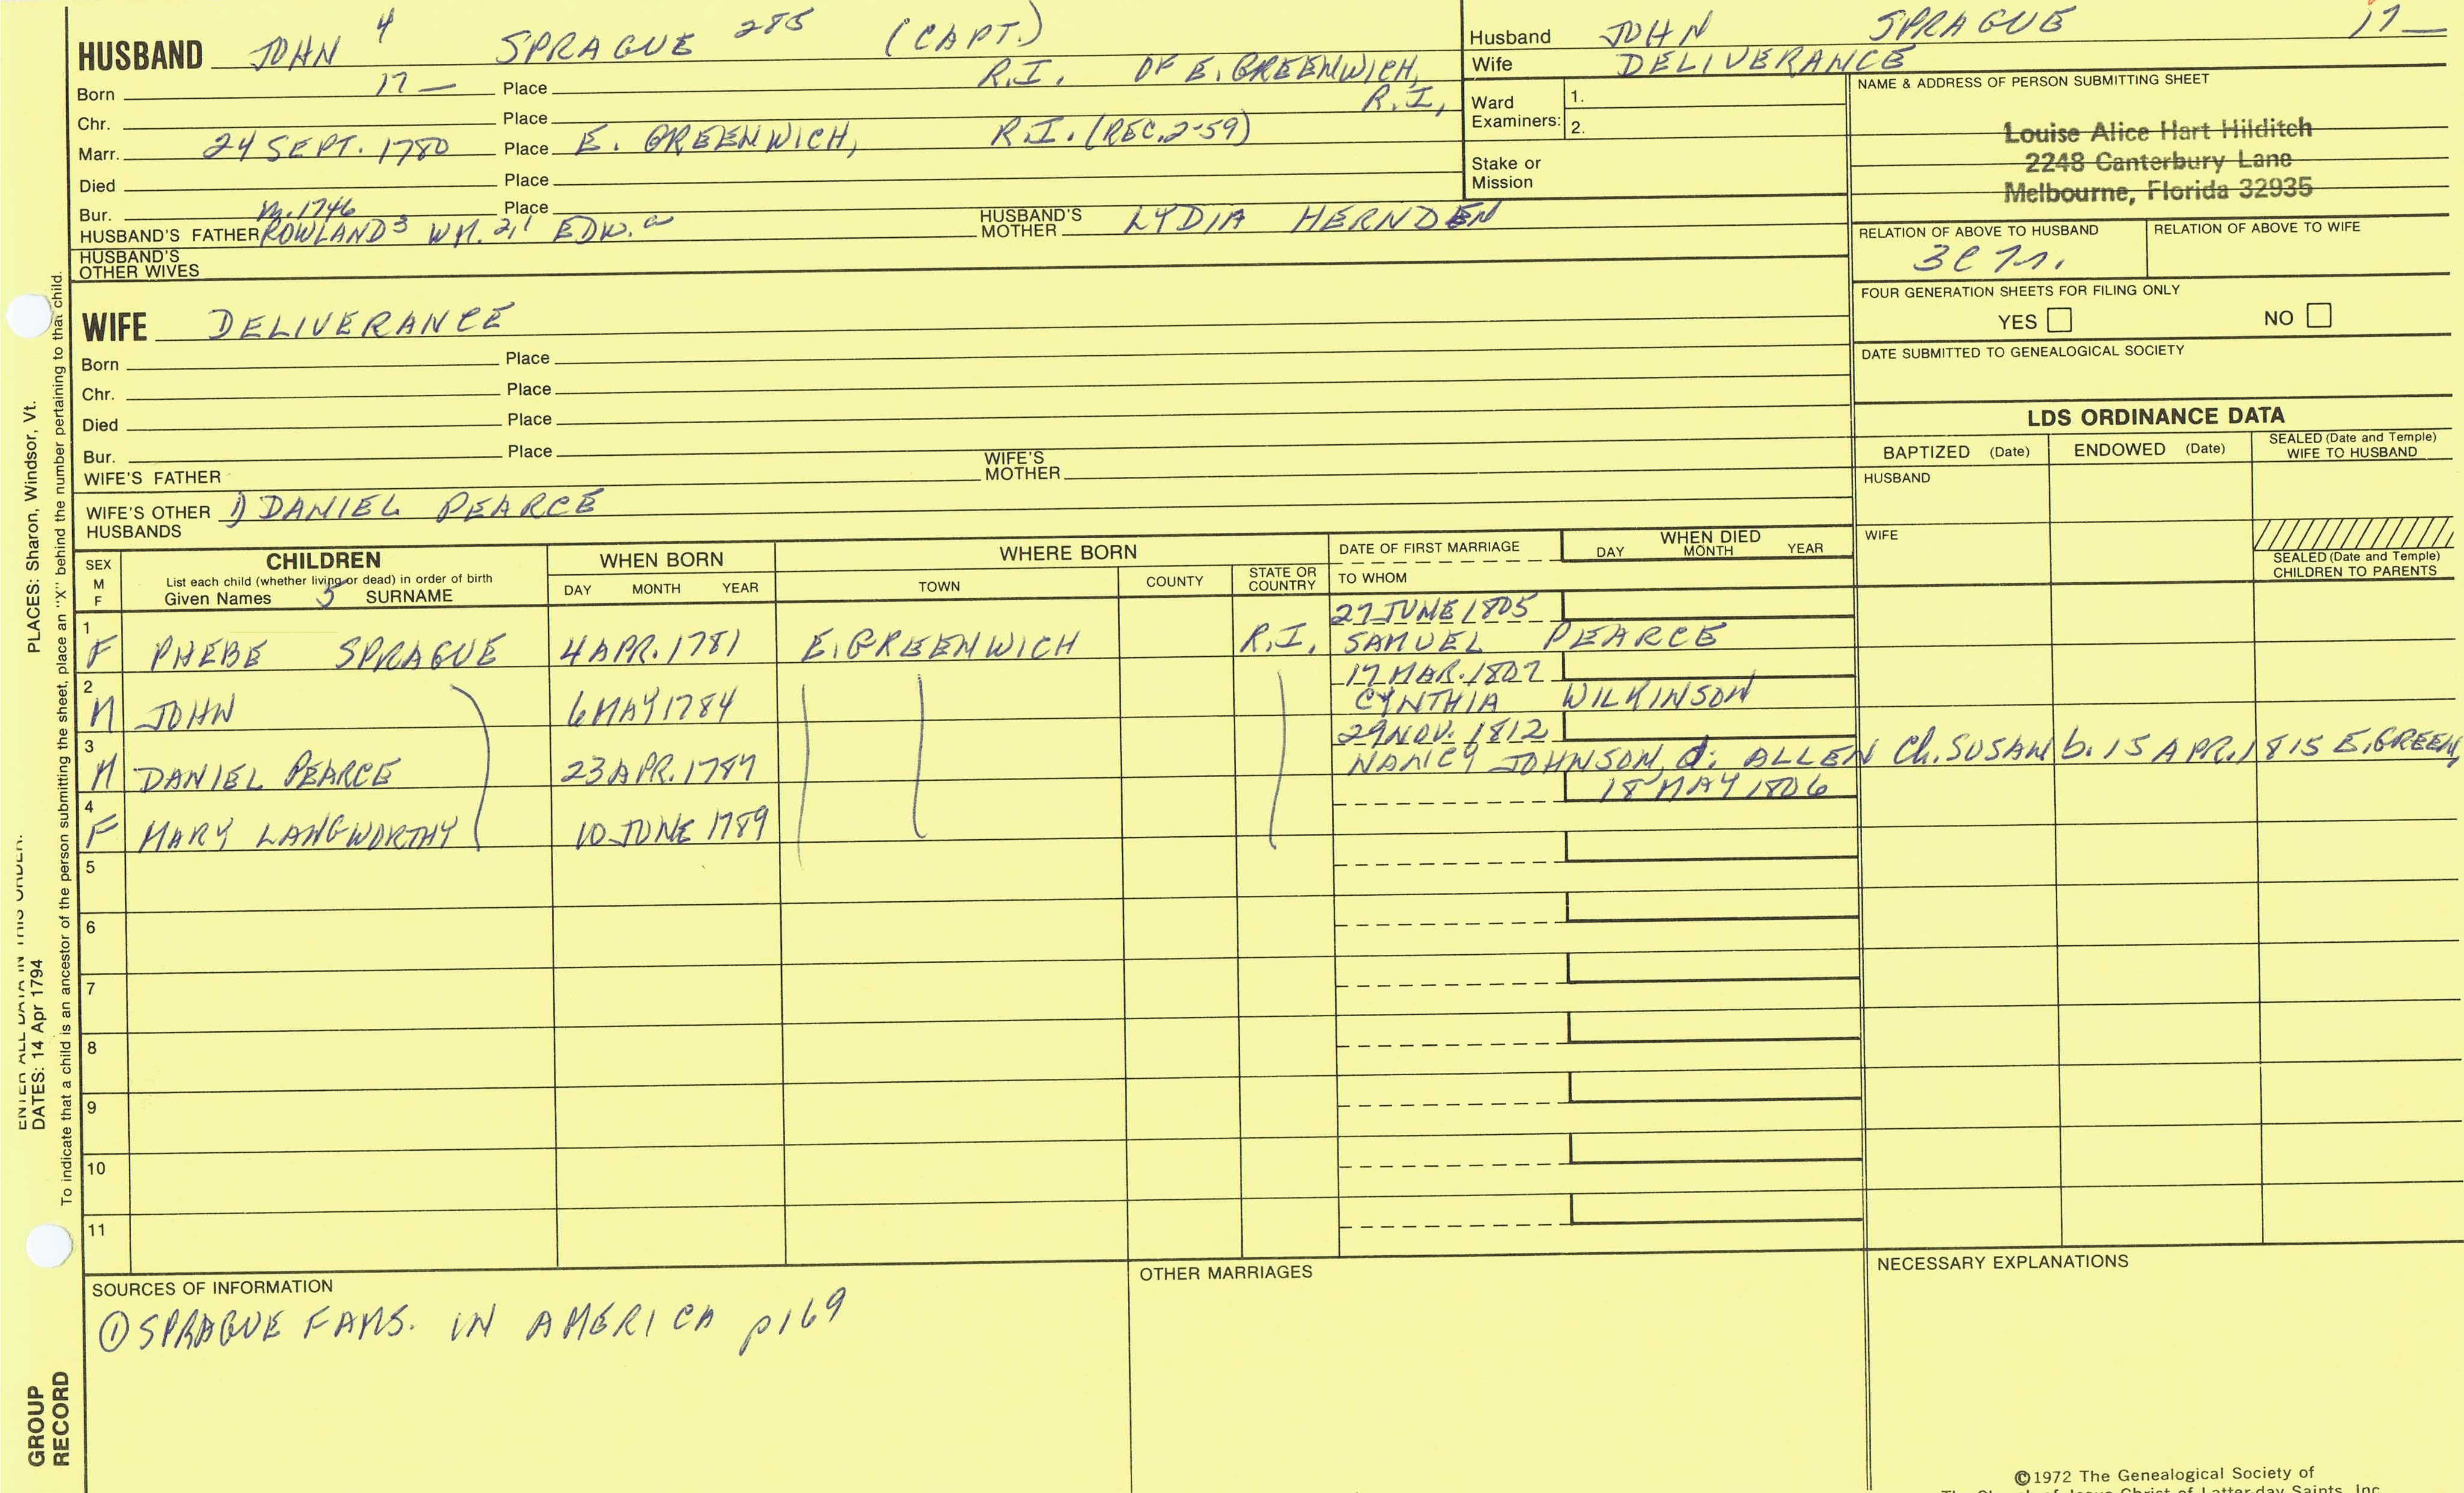 HUSBAND JOHN 4 SPRAGUE 285 (CAPT.)
Born 17— Place R.I. OF E. GREENWICH, R.I.
Chr. Place
Marr. 24 SEPT. 1780 Place E. GREENWICH, R.I. (REC. 2-59)
Died Place
Bur. Place
m. 1746
HUSBAND'S FATHER ROWLAND 3 WM. 2, 1 EDW. a HUSBAND'S MOTHER LYDIA HERNDEN
HUSBAND'S OTHER WIVES
WIFE DELIVERANCE
Born Place
Chr. Place
Died Place
Bur. Place
WIFE'S FATHER WIFE'S MOTHER
WIFE'S OTHER HUSBANDS 1) DANIEL PEARCE
Husband JOHN SPRAGUE 17—
Wife DELIVERANCE
Ward Examiners: 1.
2.
Stake or Mission
NAME & ADDRESS OF PERSON SUBMITTING SHEET
Louise Alice Hart Hilditch
2248 Canterbury Lane
Melbourne, Florida 32935
RELATION OF ABOVE TO HUSBAND RELATION OF ABOVE TO WIFE
FOUR GENERATION SHEETS FOR FILING ONLY
YES NO
DATE SUBMITTED TO GENEALOGICAL SOCIETY
LDS ORDINANCE DATA
BAPTIZED (Date) ENDOWED (Date) SEALED (Date and Temple) WIFE TO HUSBAND
HUSBAND
WIFE
SEALED (Date and Temple) CHILDREN TO PARENTS
SEX M F CHILDREN WHEN BORN WHERE BORN DATE OF FIRST MARRIAGE WHEN DIED
List each child (whether living or dead) in order of birth
Given Names 5 SURNAME DAY MONTH YEAR TOWN COUNTY STATE OR COUNTRY TO WHOM DAY MONTH YEAR
27 JUNE 1805
1 F PHEBE SPRAGUE 4 APR. 1781 E. GREENWICH R.I. SAMUEL PEARCE
17 MAR. 1807
2 M JOHN 6 MAY 1784 CYNTHIA WILKINSON
29 NOV. 1812
3 M DANIEL PEARCE 23 APR. 1787 NANCY JOHNSON, d. ALLEN Ch. SUSAN b. 15 APR. 1815 E. GREEN,
18 MAY 1806
4 F MARY LANGWORTHY 10 JUNE 1789
5
6
7
8
9
10
11
SOURCES OF INFORMATION
① SPRAGUE FAMS. IN AMERICA p169
OTHER MARRIAGES
NECESSARY EXPLANATIONS
©1972 The Genealogical Society of
The Church of Jesus Christ of Latter-day Saints, Inc.
PLACES: Sharon, Windsor, Vt.
ENTER ALL DATA IN THIS ORDER:
DATES: 14 Apr 1794
To indicate that a child is an ancestor of the person submitting the sheet, place an "X" behind the number pertaining to that child.
GROUP RECORD